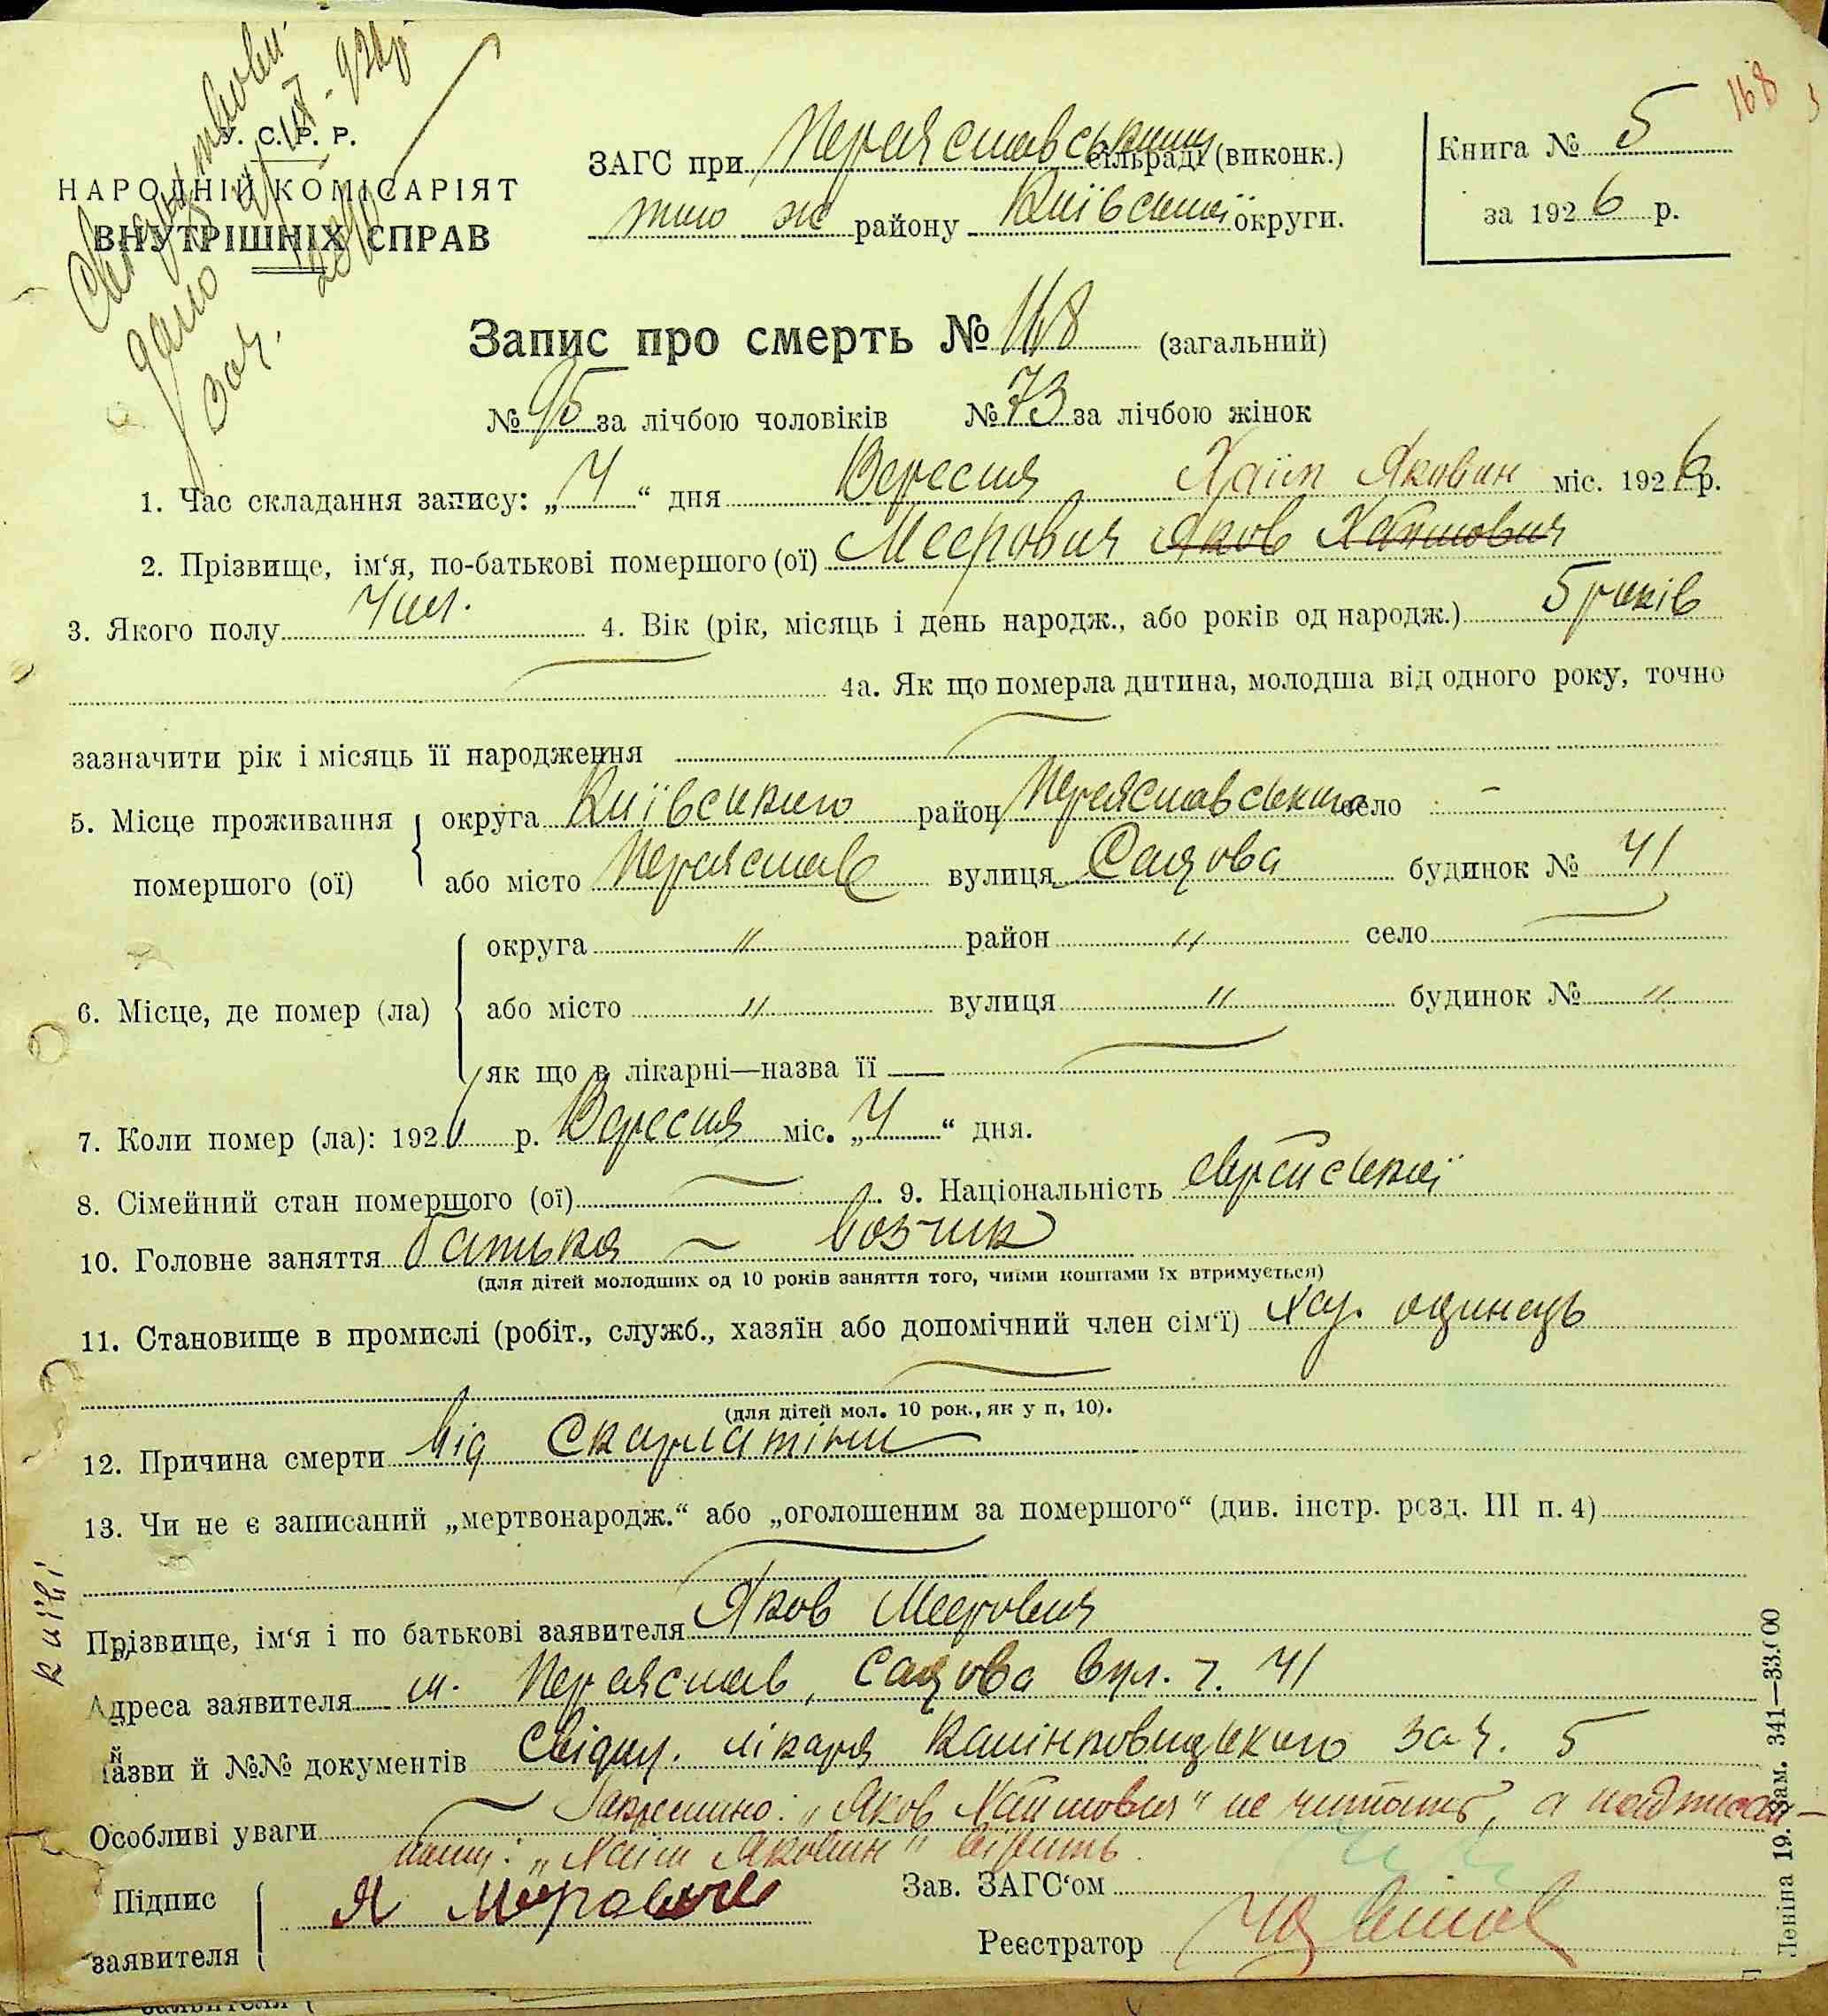 168
У. С. Р. Р.
НАРОДНІЙ КОМІСАРІЯТ
ВНУТРІШНІХ СПРАВ
ЗАГС при Переяславським сільраді (виконк.)
того ж району Київської округи.
Книга № 5
за 1926 р.
Запис про смерть № 168 (загальний)
№ 95 за лічбою чоловіків № 73 за лічбою жінок
1. Час складання запису: „ 4 “ дня Вересня міс. 1926 р.
Хаїм Якович
2. Прізвище, ім‘я, по-батькові помершого (ої) Меєрович Яков Хаїмович
3. Якого полу Чол. 4. Вік (рік, місяць і день народж., або років од народж.) 5 років
4а. Як що померла дитина, молодша від одного року, точно
зазначити рік і місяць її народження
5. Місце проживання помершого (ої) округа Київського район Переяславського село -
або місто Переяслав вулиця Садова будинок № 41
6. Місце, де помер (ла) округа " район " село
або місто " вулиця " будинок № "
як що в лікарні—назва її
7. Коли помер (ла): 1926 р. Вересня міс. „ 4 “ дня.
8. Сімейний стан помершого (ої) 9. Національність єврейської
10. Головне заняття батька – возчик
(для дітей молодших од 10 років заняття того, чиїми коштами їх втримується)
11. Становище в промислі (робіт., служб., хазяїн або допомічний член сім‘ї) Хаз. одинець
(для дітей мол. 10 рок., як у п, 10).
12. Причина смерти Від Скарлатіни
13. Чи не є записаний „мертвонародж.“ або „оголошеним за помершого“ (див. інстр. розд. III п. 4)
Прізвище, ім‘я і по батькові заявителя Яков Меєрович
Адреса заявителя м. Переяслав, Садова вул. ч. 41
Назви й №№ документів Свідоц. лікаря за ч. 5
Особливі уваги Закреслино: „Яков Хаїмович“ не читать, а надписан-
ному: „Хаїм Якович“ вірить.
Підпис заявителя Я Меровичь
Зав. ЗАГС‘ом
Реєстратор
Леніна 19. Зам. 341—33.000